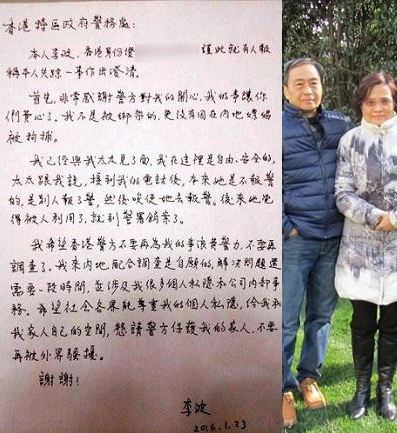 香港特區政府警務處:
本人李波,香港身份證 謹此就有人報
稱本人失踪一事作出澄清。
首先,非常感謝警方對我的關心,我的事讓你
們費心了。我不是被綁架的,更沒有因在內地嫖娼
被拘捕。
我已經與我太太見了面,我在這裡是自由、安全的,
太太跟我說,接到我的電話後,本來她是不報警
的,是別人報了警,然後唆使她去報警,後來她覺
得被人利用了,就到警署銷案了。
我希望香港警方不要再為我的事浪費警力,不要再
調查了。我來內地配合調查是自願的,解決問題還
需要一段時間,並涉及我很多個人私隱和公司內部事
務。希望社會各界能尊重我的個人私隱,給我和
我家人自己的空間,懇請警方保護我的家人,不要
再被外界騷擾。
謝謝!
李波
2016.1.23